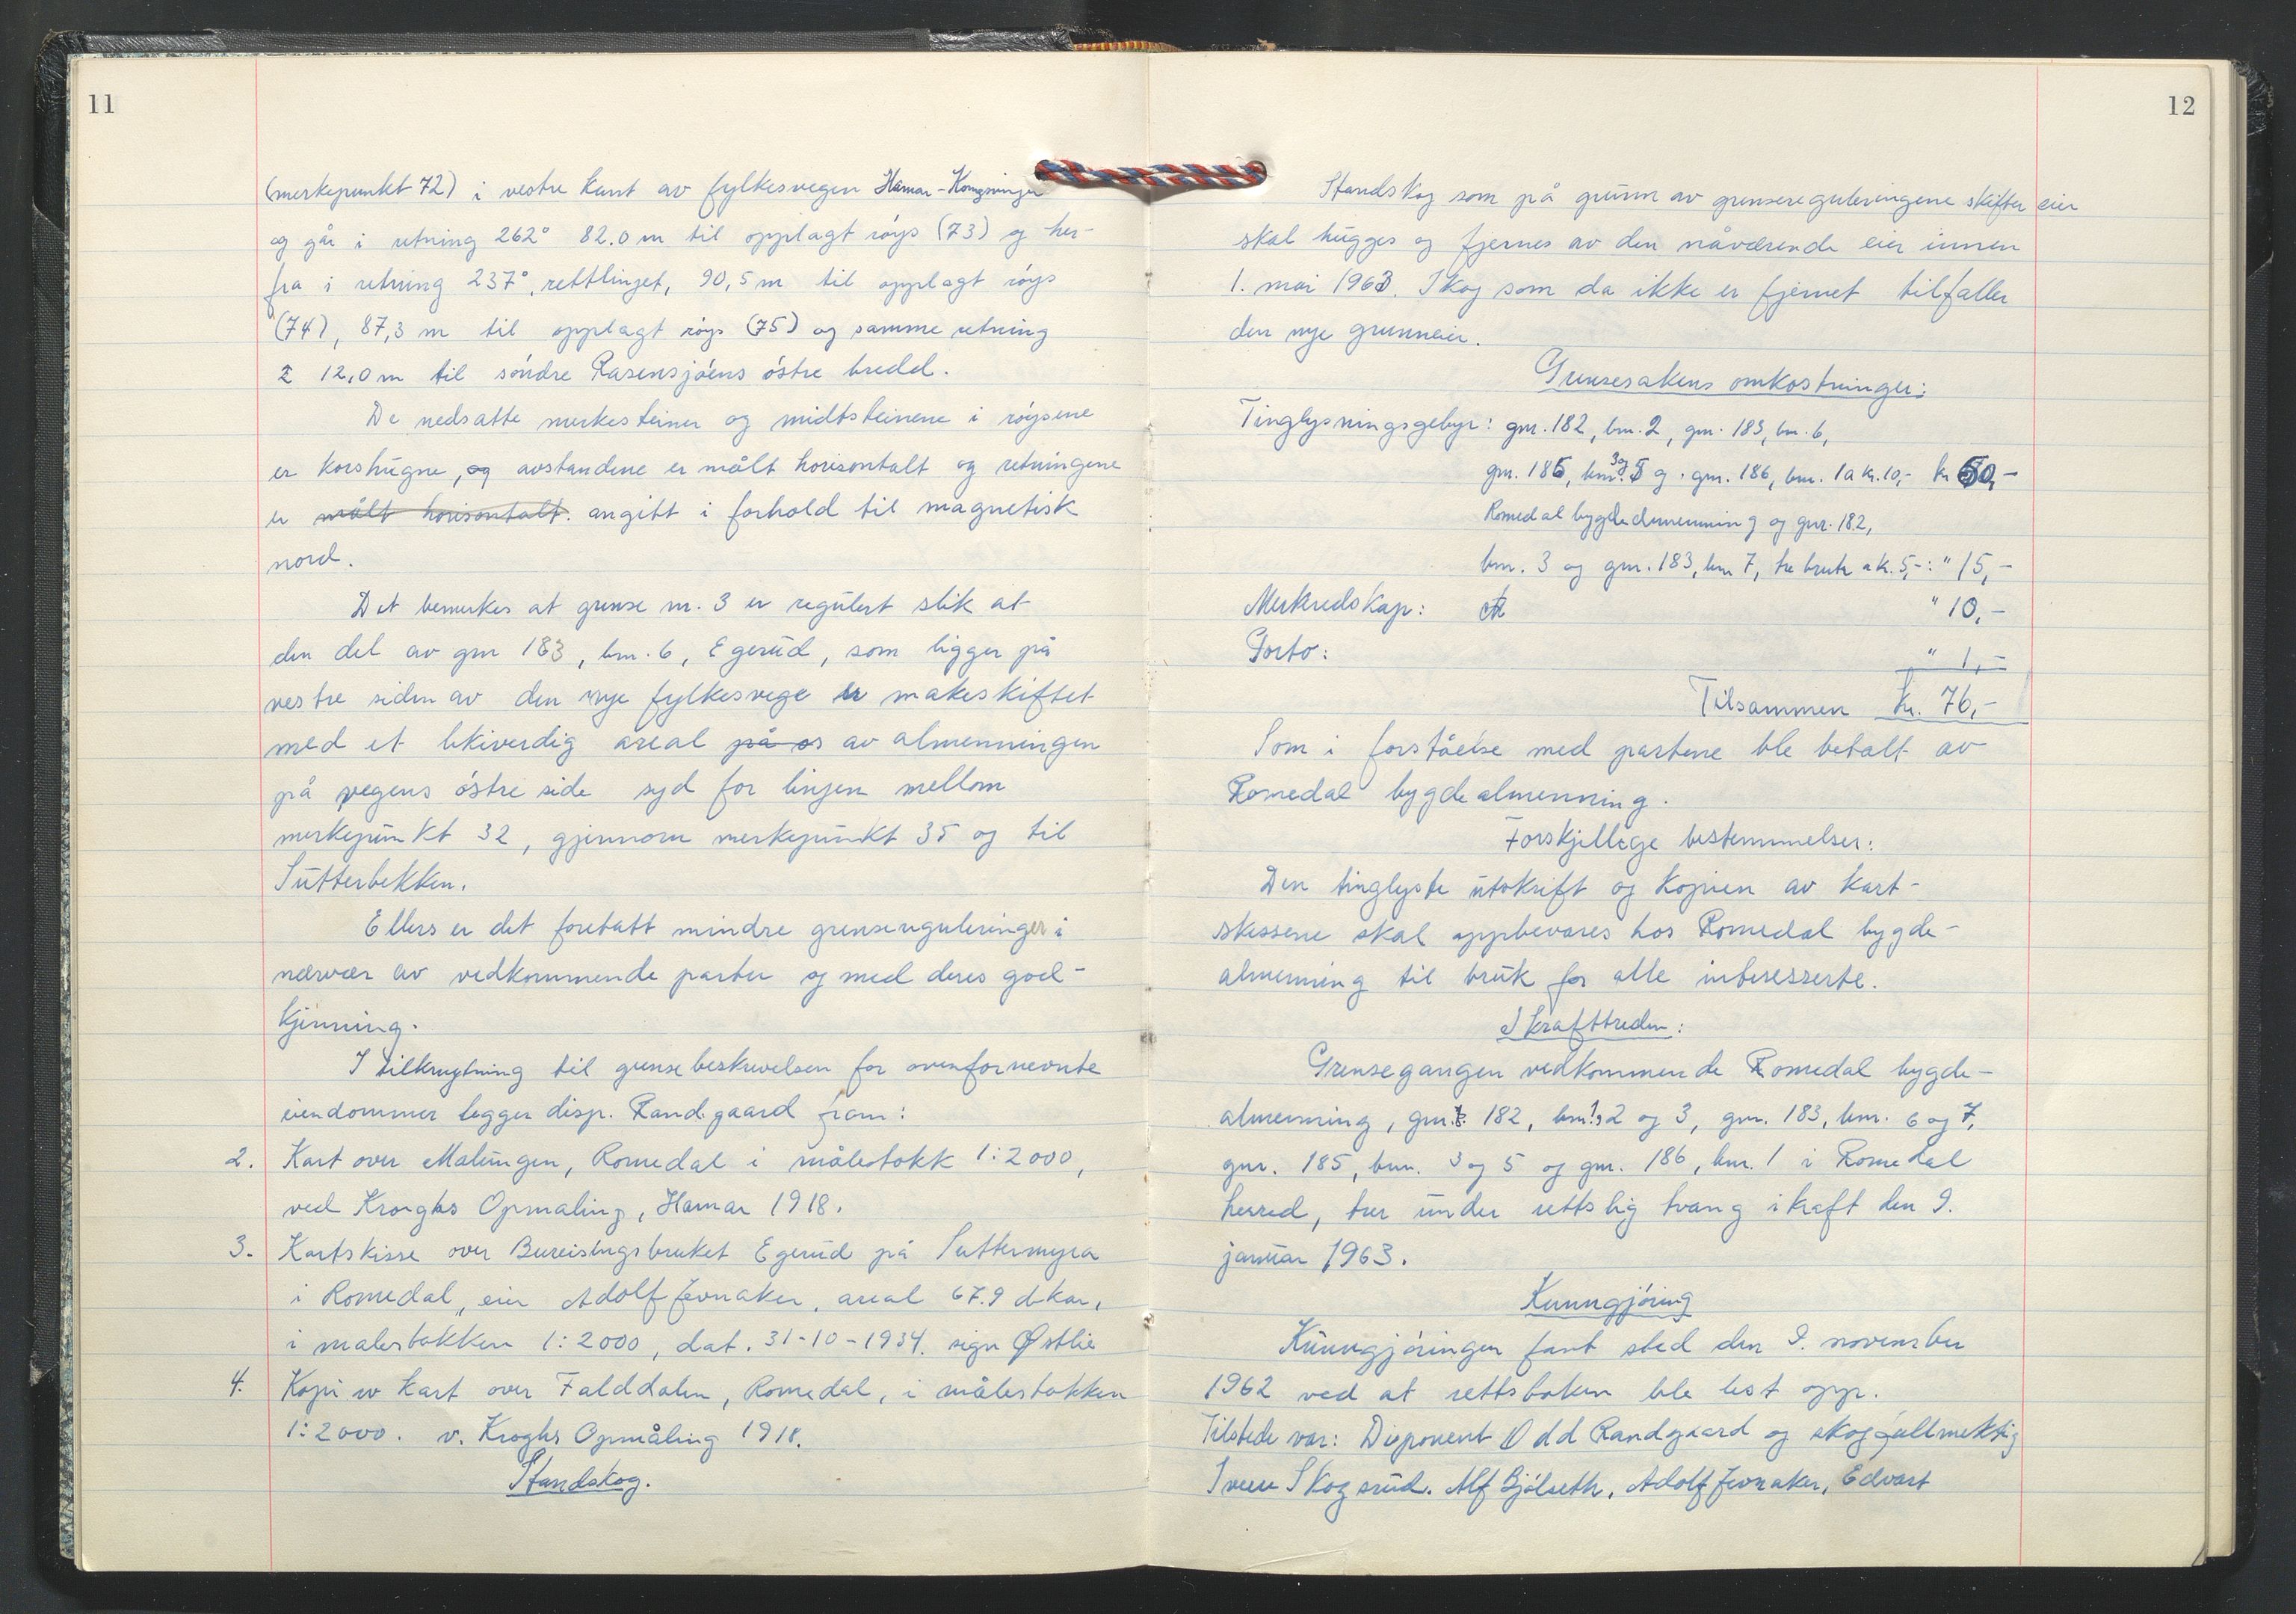 11
(merkepunkt 72) i vestre kant av fylkesvegen Hamar-Kongsvinger
og går i retning 262° 82.0 m til opplagt röys (73) og her-
fra i retning 237°, rettlinjet, 90,5 m til opplagt röys
(74), 87,3 m til opplagt röys (75) og samme retning
12,0 m til söndre Rasensjöens östre bredd.
De nedsatte merkesteiner og midtsteinene i röysene
er korshugne, og avstandene er målt horisontalt og retningene
er målt horisontalt. angitt i forhold til magnetisk
nord.
Det bemerkes at grense nr. 3 er regulert slik at
den del av gnr 183, bnr. 6, Egerud, som ligger på
vestre siden av den nye fylkesvege er makeskiftet
med et likeverdig areal på øs av almenningen
på vegens östre side syd for linjen mellom
merkepunkt 32, gjennom merkepunkt 35 og til
Sutterbekken.
Ellers er det foretatt mindre grensereguleringer i
nærvær av vedkommende parter og med deres god-
kjenning.
I tilknytning til grensebeskrivelsen for ovenfornevnte
eiendommer legger disp. Randgaard fram:
2. Kart over Malungen, Romedal i målestokk 1:2000,
ved Kroghs Opmaling, Hamar 1918.
3. Kartskisse over Bureisingsbruket Egerud på Suttermyra
i Romedal, eier Adolf Jevnaker, areal 67.9 dekar,
i malestokken 1:2000, dat. 31-10-1934. sign Østlie
4. Kopi av kart over Falddalen, Romedal, i målestokken
1:2000. v. Kroghs Opmåling 1918.
Standskog.
12
Standskog som på grunn av grensereguleringene skifter eier
skal hugges og fjernes av den nåværende eier innen
1. mai 1963. Skog som da ikke er fjernet tilfaller
den nye grunneier.
Grensesakens omkostninger:
Tinglysningsgebyr: gnr. 182, bnr. 2, gnr. 183, bnr. 6,
gnr. 185, bnr. 3 og 5 og gnr. 186, bnr. 1 a kr. 10,- kr 50,-
Romedal bygdealmenning og gnr. 182,
bnr. 3 og gnr. 183, bnr 7, tre bruk a kr. 5,-: " 15,-
Merkredskap: " 10,-
Porto: " 1,-
Tilsammen kr. 76,-
Som i forståelse med partene ble betalt av
Romedal bygdealmenning.
Forskjellige bestemmelser:
Den tinglyste utskrift og kopien av kart-
skissene skal oppbevares hos Romedal bygde-
almenning til bruk for alle interesserte.
Ikrafttreden:
Grensegangen vedkommende Romedal bygde-
almenning, gnr. 182, bnr. 2 og 3, gnr. 183, bnr. 6 og 7,
gnr. 185, bnr. 3 og 5 og gnr. 186, bnr. 1 i Romedal
herred, trer under rettslig tvang i kraft den 9.
januar 1963.
Kunngjöring
Kunngjöringen fant sted den 9. november
1962 ved at rettsboken ble lest opp.
Tilstede var: Disponent Odd Randgaard og skogfullmektig
Svein Skogsrud. Alf Bjölseth, Adolf Jevnaker, Edvart